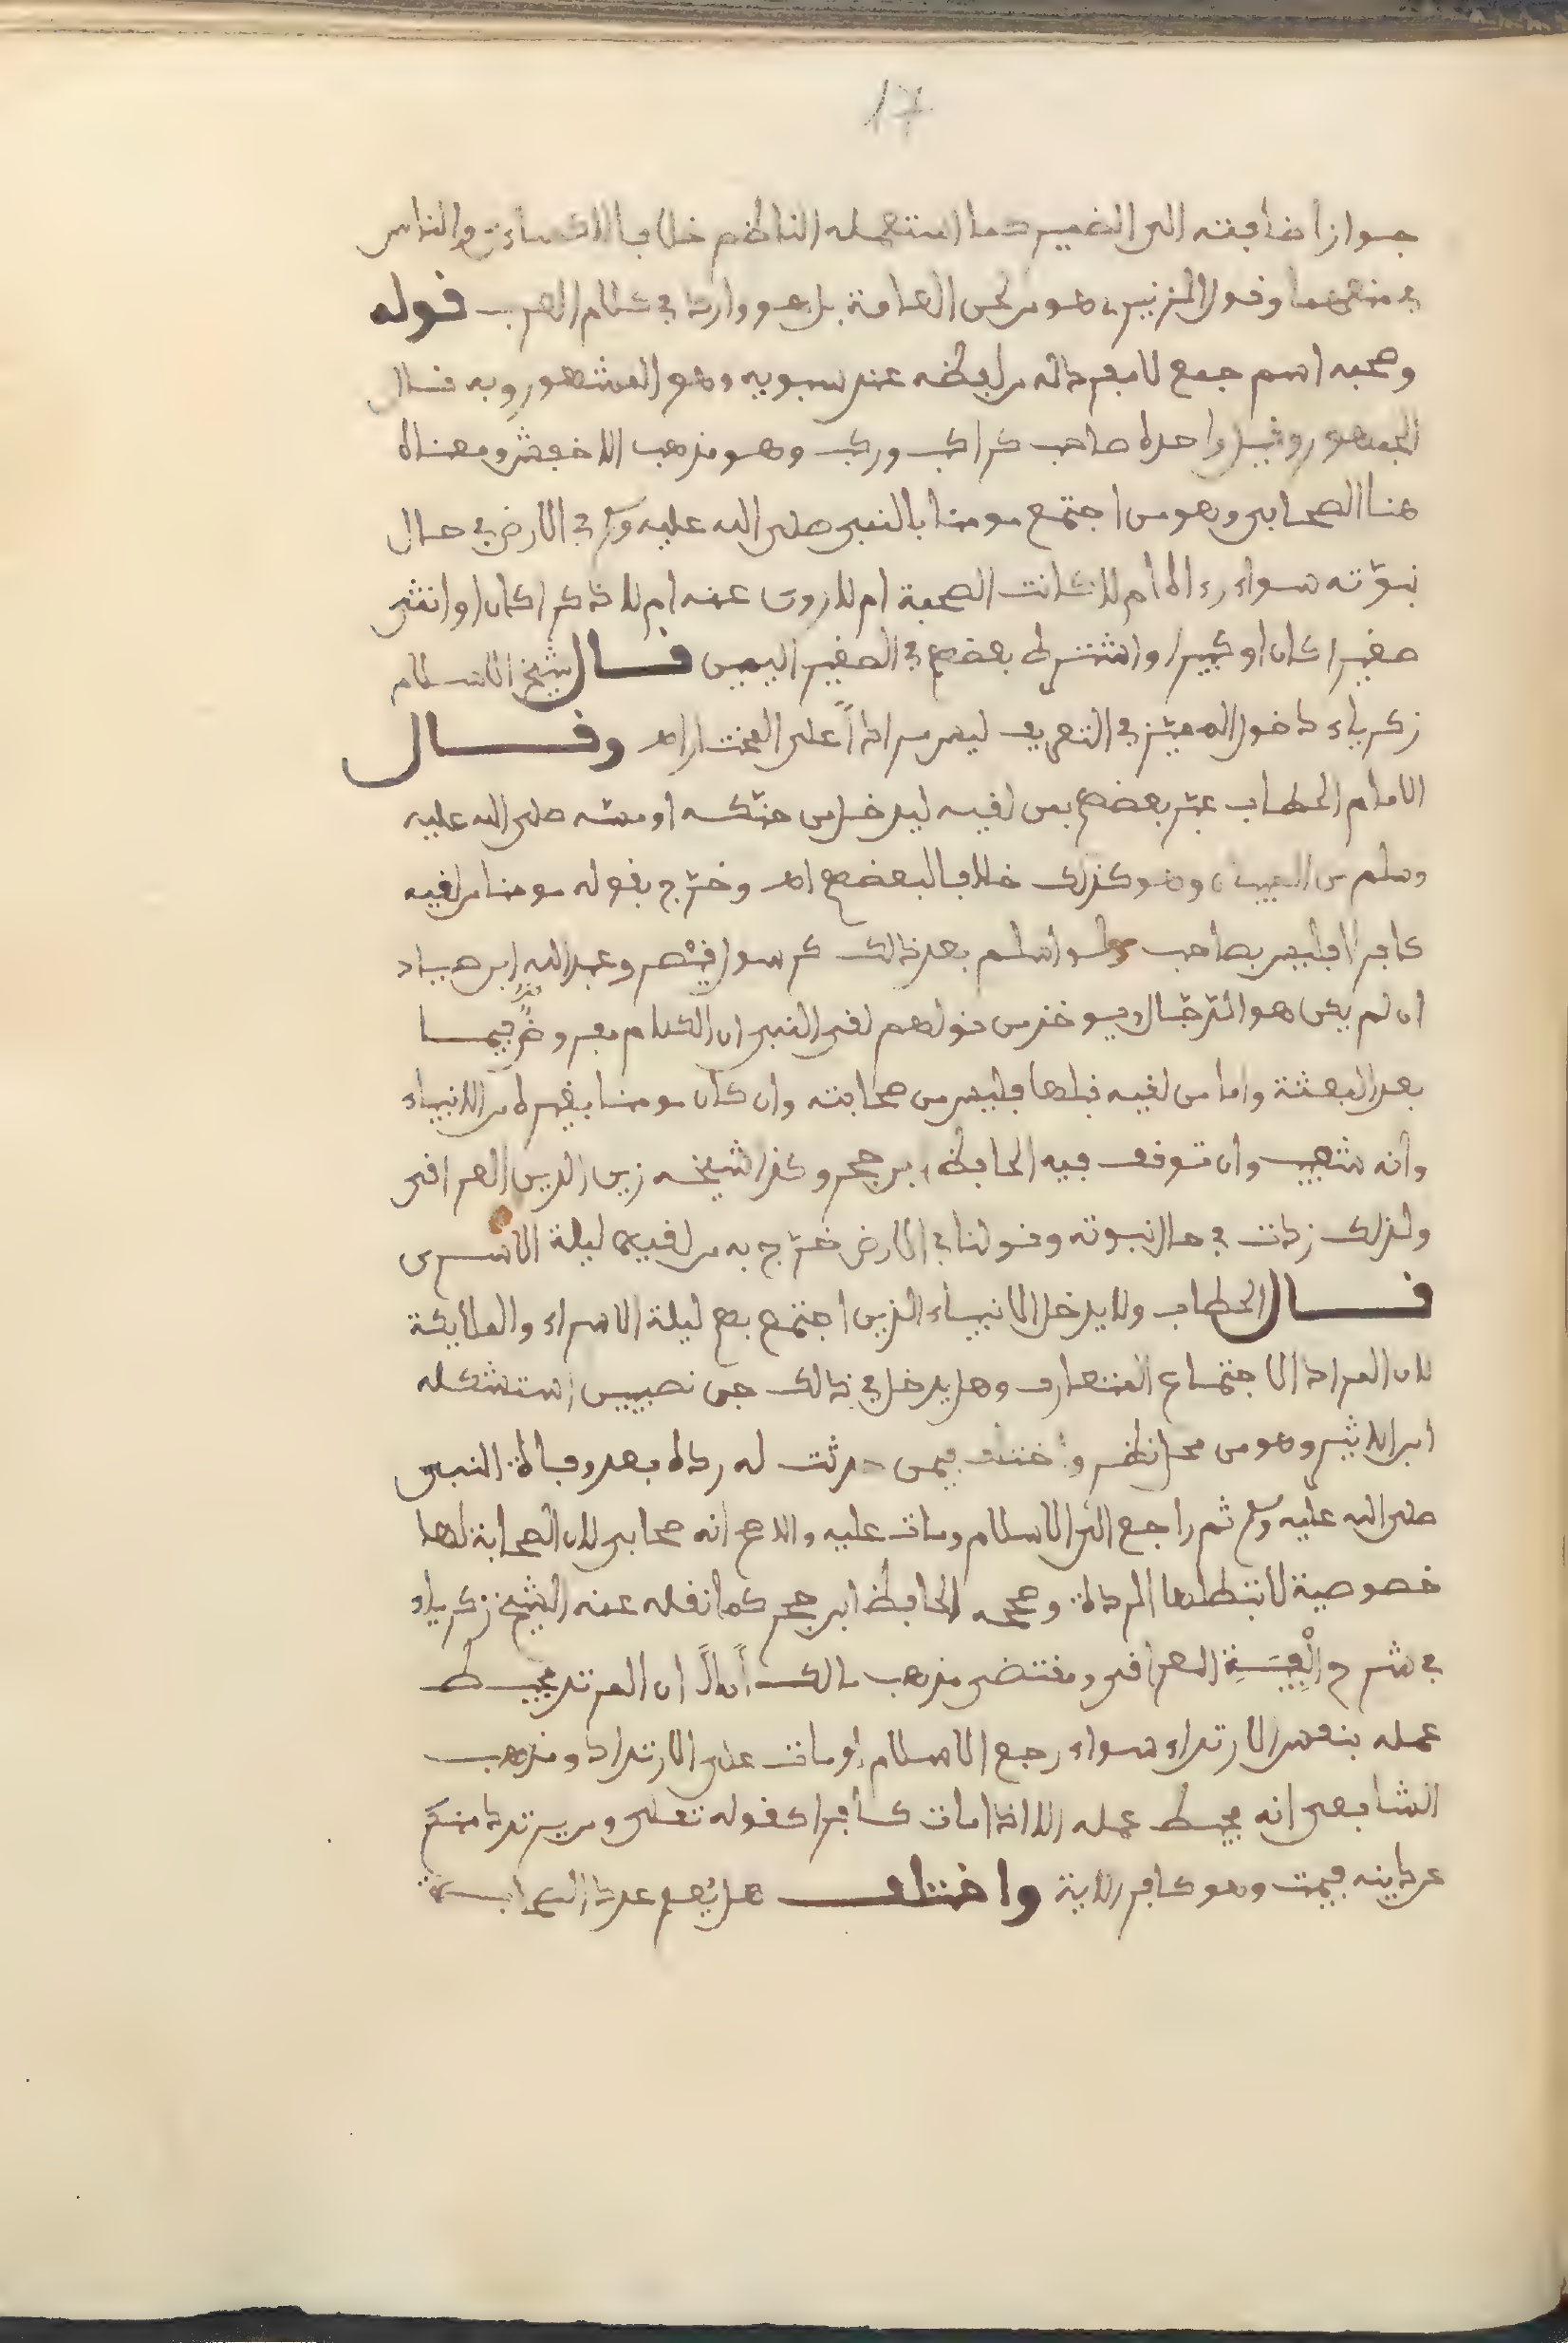 17
جواز إضافته الى الضمير كما استعمله الناظم خلافا للكساءي والنحاس
في منعهما وقول الزبيدي هو من لحن العامة بل هو وارد في كلام العرب قوله
وصحبه اسم جمع لا مفرد له من لفظه عند سبويه وهو المشهور وبه قال
الجمهور وقيل واحده صاحب كراكب وركب وهو مذهب الاخفش ومعناه
هنا الصحابي وهو من اجتمع مومنا بالنبي صلى الله عليه وسلم في الارض في حال
نبوّته سواء رءاه أم لا كانت الصحبة ام لا روى عنه ام لا ذكرا كان او انثى
صغيرا كان او كبيرا واشترط بعضهم في الصغير التمييز قال شيخ الاسلام
زكرياء دخول المميّز في التعريف ليس مرادا على المختار اه وقال
الامام الحطاب عبّر بعضهم بمن لقيه ليدخل من حنّكه او مسّه صلى الله عليه
وسلم من الصبيان وهو كذلك خلافا لبعضهم اه وخرّج بقوله مومنا من لقيه
كافرا فليس بصاحب ولو اسلم بعد ذالك كرسول قيْصر وعبد الله ابن صياد
ان لم يكن هو الدّجّال ويوخذ من قولهم لقي النبي ان الكلام مفروض فيما
بعد البعثة واما من لقيه قبلها فليس من صحابته وان كان مومنا بغيره من الانبياء
وانه سَيُبعث وان توقف فيه الحافظ ابن حجر وكذا شيخه زين الدين العراقي
ولذلك زدت في حال نبوته وقولنا في الارض خرّج به من لقيه ليلة الاسرى
قال الحطاب ولا يدخل الانبياء الذين اجتمع بهم ليلة الاسراء والملايكة
لان المراد الاجتماع المتعارف وهل يدخل في ذالك جن نصيبين استشكله
ابن الاثير وهو من محل نظر واختلف فيمن حدثت له ردة بعد وفاة النبي
صلى الله عليه وسلم ثم راجع الى الاسلام ومات عليه والاصح انه صحابي لان الصحابة لها
خصوصية لا تبطلها الردة وصححه الحافظ ابن حجر كما نقله عنه الشيخ زكرياء
في شرح ألْفِيَّةِ العراقي ومقتضى مذهب مالك أولاً ان المرتد يحبط
عمله بنفس الارتداد سواء رجع الاسلام او مات على الارتداد ومذهب
الشافعي انه يحبط عمله الا اذا مات كافرا كقوله تعلى ومن يرتدد منكم
عن دينه فيمت وهو كافر الاية واختلف هل يُعلم عدد الصحابة